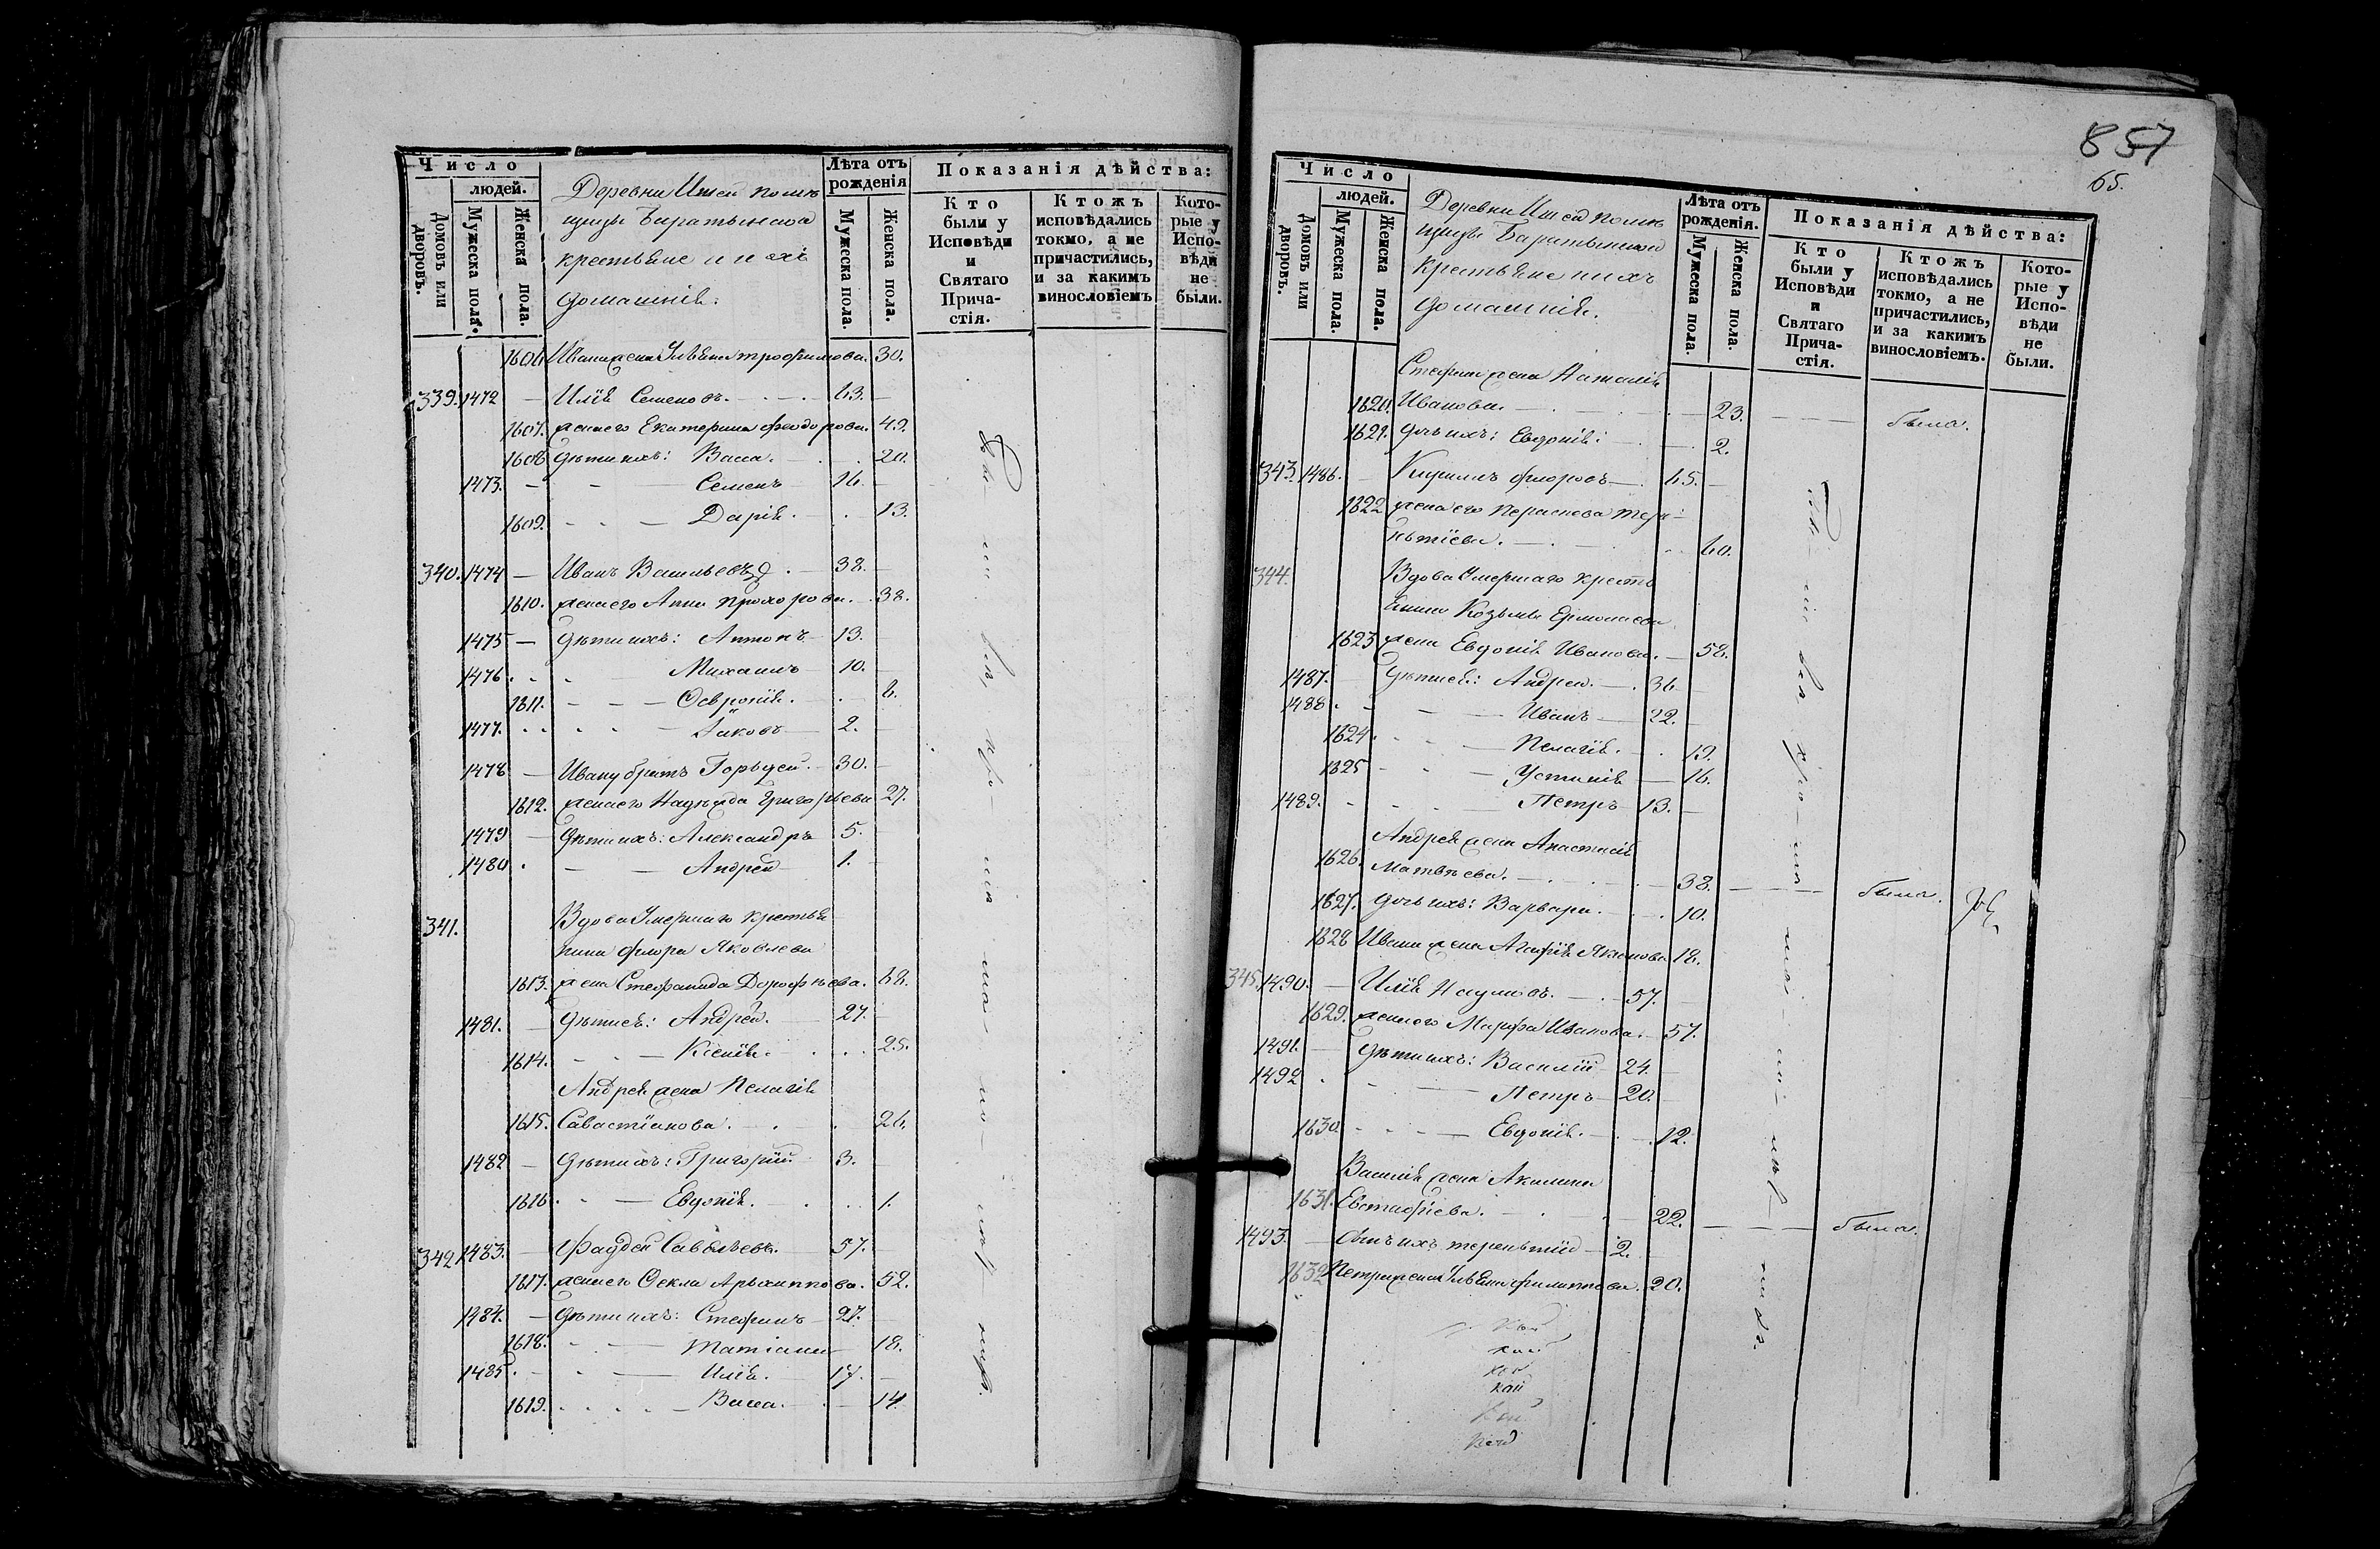 Число
людей.
Домовъ или дворовъ.
Мужеска пола.
Женска пола.
Деревни
крестьяне и ихъ
домашнія:
Лѣта отъ рожденія
Мужеска пола.
Женска пола.
Показанія дѣйства:
Кто были у Исповѣди и Святаго Причастія.
Ктожъ исповѣдались токмо, а не причастились, и за какимъ винословіемъ
Которые у Исповѣди не были.
1606. Ивана жена Ульяна Трофимова. 30.
339. 1472 Илія Семеновъ. 63.
1607. жена его Екатерина Феодорова. 49.
1608 Дѣти ихъ: Васса. 20.
1473. Семенъ 16.
1609. Дарія. 13.
340. 1474 Иванъ Васильевъ 38.
1610. жена его Анна Прохорова. 38.
1475 Дѣти ихъ: Антонъ 13.
1476 Михаилъ 10.
1611. Ѳевронія. 6.
1477. Іаковъ 2.
1478 Ивану братъ Гордей. 30.
1612. жена его Надежда Григорьева 27.
1479 Дѣти ихъ: Александръ 5.
1480 Андрей 1.
341. Вдова Умершаго крестья
нина Флора Яковлева
1613. жена Стефанида Дорофѣева. 68.
1481. Дѣти ея: Андрей. 27.
1614. Ксенія. 25.
Андрея жена Пелагія
1615. Савастіанова. 26.
1482 Дѣти ихъ: Григорій 3.
1616 Евдокія. 1.
342 1483. Фаддей Савельевъ. 57.
1617. жена его Ѳекла Архиппова. 52.
1484. Дѣти ихъ: Стефанъ 27.
1618. Татіана 18.
1485 Илія. 17.
1619. Васса. 14.
857
65.
Число
людей.
Домовъ или дворовъ.
Мужеска пола.
Женска пола.
Деревни
крестьяне и ихъ
домашнія.
Лѣта отъ рожденія.
Мужеска пола.
Женска пола.
Показанія дѣйства:
Кто были у Исповѣди и Святаго Причастія.
Ктожъ исповѣдались токмо, а не причастились, и за какимъ винословіемъ.
Которые у Исповѣди не были.
Стефана жена Наталія
1620. Иванова 23. была.
1621. Дочь ихъ: Евдокія: 2.
343. 1486. Кириллъ Флоровъ 65.
1622 жена его Параскева Тере
нтіева. 60.
344. Вдова Умершаго кресть
янина Козьмы Ермолаева
1623 жена Евдокія Иванова. 58.
1487. Дѣти ея: Андрей. 36
1488 Иванъ 22.
1624 Пелагія. 19.
1625 Устинія 16.
1489. Петръ 13.
Андрея жена Анастасія
1626. Матвѣева. 38. была.
1627. Дочь ихъ: Варвара. 10.
1628 Ивана жена Агафія 18.
345. 1490. Илія Наумовъ. 57.
1629. жена его Марфа Иванова. 57.
1491. Дѣти ихъ: Василій 24.
1492 Петръ 20.
1630. Евдокія. 12.
Василія жена Акилина
1631. Евстафіева. 22. была.
1493. Сынъ ихъ Терентій 2.
1632 Петра жена Ульяна Филиппова. 20.